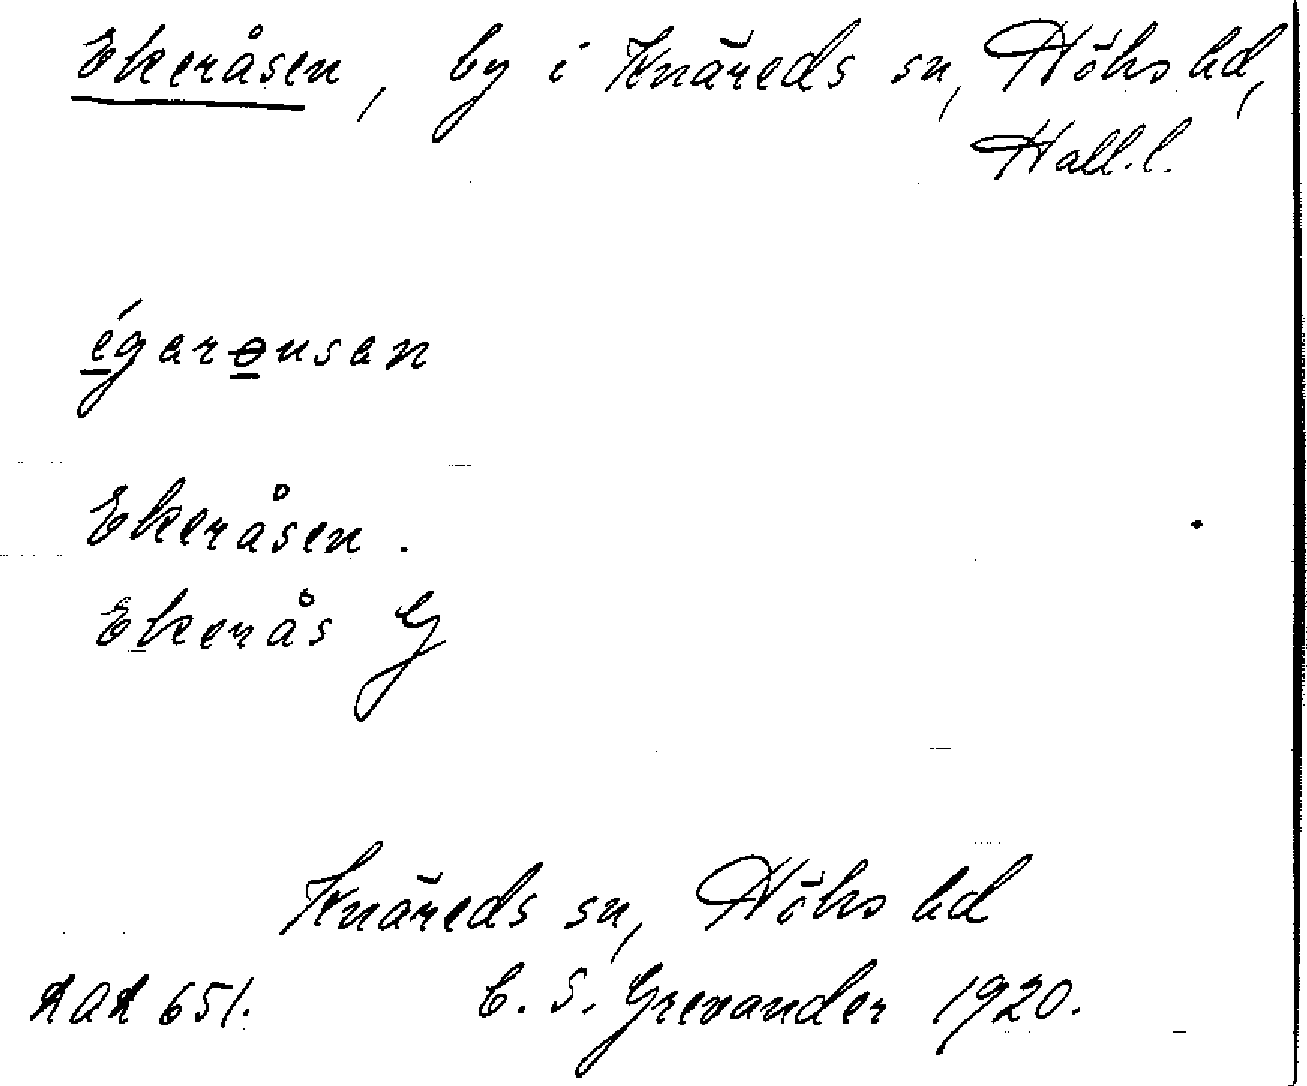 Ekeråsen, by i Knäreds sn, Höks hd,
Hall.l.
égarɵusan
Ekeråsen.
Ekerås G
Knäreds sn, Höks hd
651. C. S. Grevander 1920.